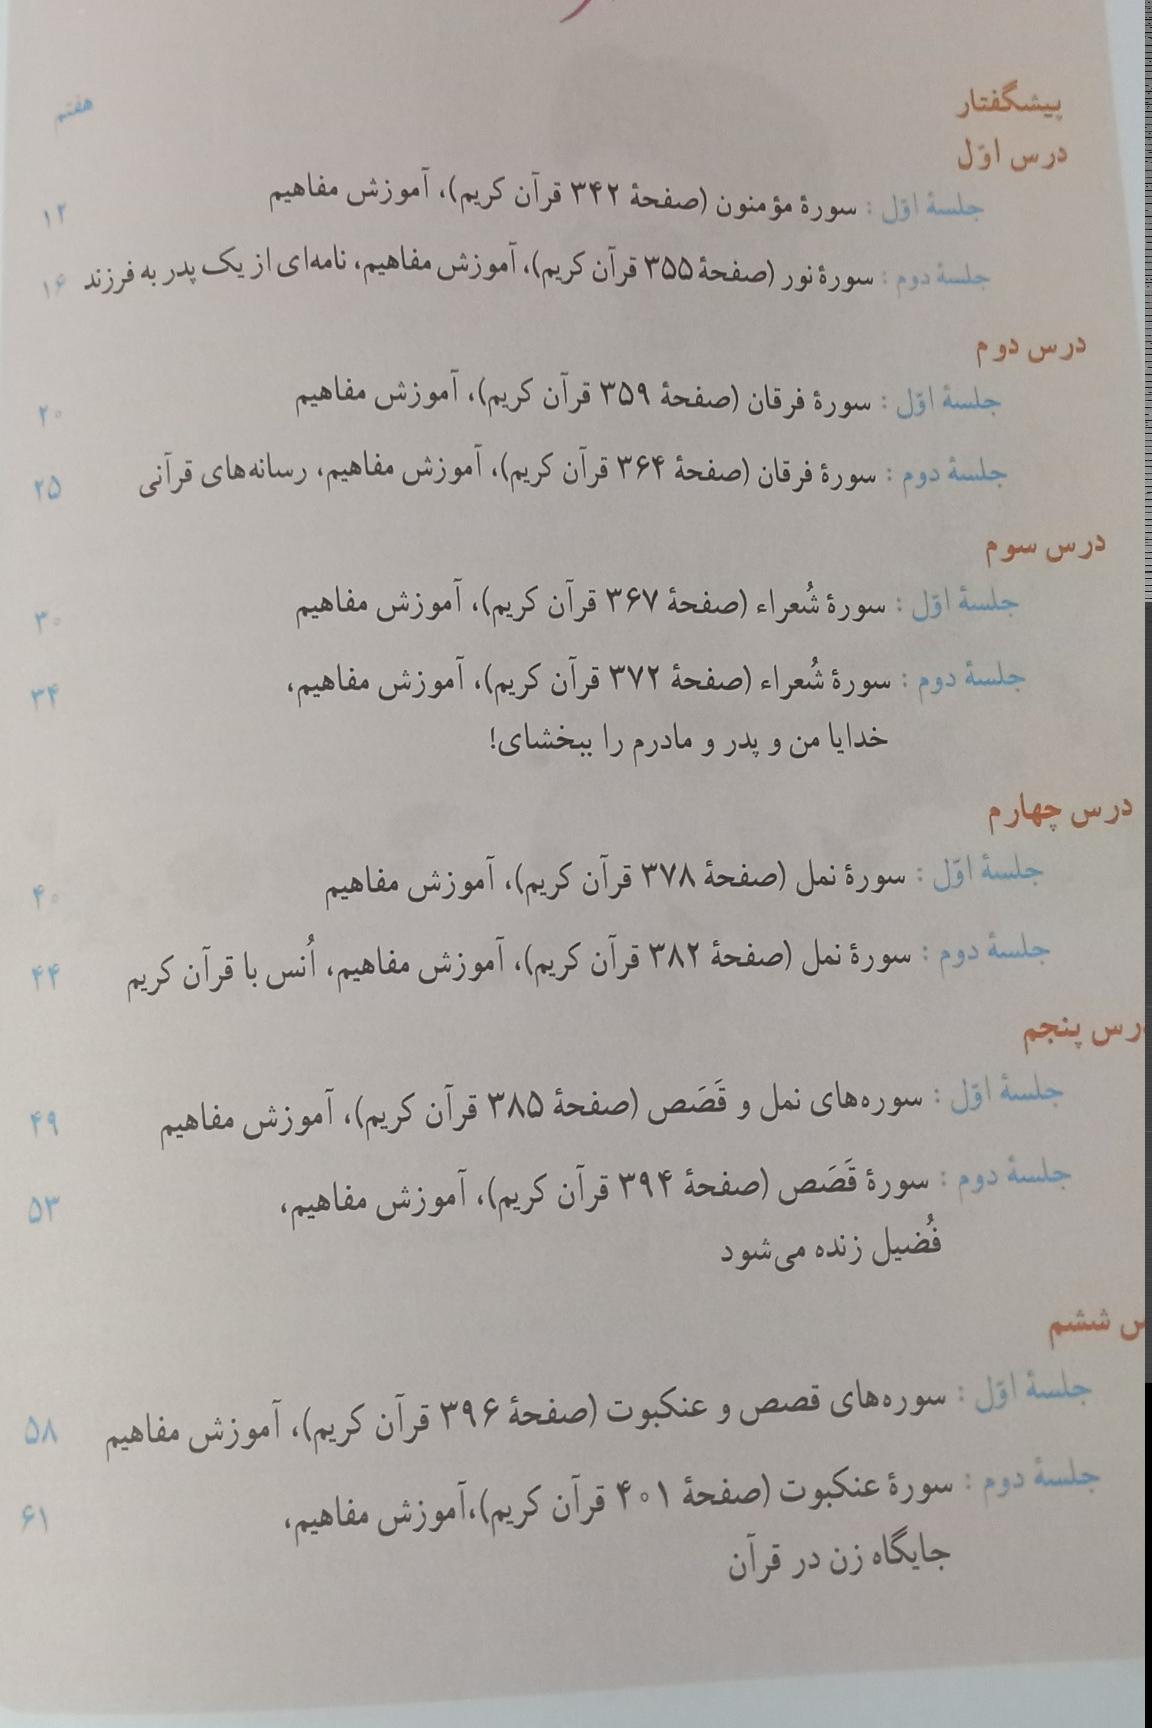 پیشگفتار هفتم
درس اوّل
جلسهٔ اوّل : سورهٔ مؤمنون (صفحهٔ ۳۴۲ قرآن کریم)، آموزش مفاهیم ۱۲
جلسهٔ دوم : سورهٔ نور (صفحهٔ ۳۵۵ قرآن کریم)، آموزش مفاهیم، نامه‌ای از یک پدر به فرزند ۱۶
درس دوم
جلسهٔ اوّل : سورهٔ فرقان (صفحهٔ ۳۵۹ قرآن کریم)، آموزش مفاهیم ۲۰
جلسهٔ دوم : سورهٔ فرقان (صفحهٔ ۳۶۴ قرآن کریم)، آموزش مفاهیم، رسانه‌های قرآنی ۲۵
درس سوم
جلسهٔ اوّل : سورهٔ شُعراء (صفحهٔ ۳۶۷ قرآن کریم)، آموزش مفاهیم ۳۰
جلسهٔ دوم : سورهٔ شُعراء (صفحهٔ ۳۷۲ قرآن کریم)، آموزش مفاهیم، ۳۴
خدایا من و پدر و مادرم را ببخشای!
درس چهارم
جلسهٔ اوّل : سورهٔ نمل (صفحهٔ ۳۷۸ قرآن کریم)، آموزش مفاهیم ۴۰
جلسهٔ دوم : سورهٔ نمل (صفحهٔ ۳۸۲ قرآن کریم)، آموزش مفاهیم، اُنس با قرآن کریم ۴۴
رس پنجم
جلسهٔ اوّل : سوره‌های نمل و قَصَص (صفحهٔ ۳۸۵ قرآن کریم)، آموزش مفاهیم ۴۹
جلسهٔ دوم : سورهٔ قَصَص (صفحهٔ ۳۹۴ قرآن کریم)، آموزش مفاهیم، ۵۳
فُضیل زنده می‌شود
س ششم
جلسهٔ اوّل : سوره‌های قصص و عنکبوت (صفحهٔ ۳۹۶ قرآن کریم)، آموزش مفاهیم ۵۸
جلسهٔ دوم : سورهٔ عنکبوت (صفحهٔ ۴۰۱ قرآن کریم)،آموزش مفاهیم، ۶۱
جایگاه زن در قرآن